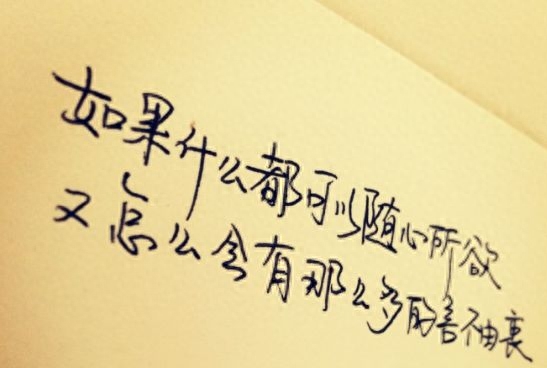 如果什么都可以随心所欲
又怎么会有那么多的善袖衷